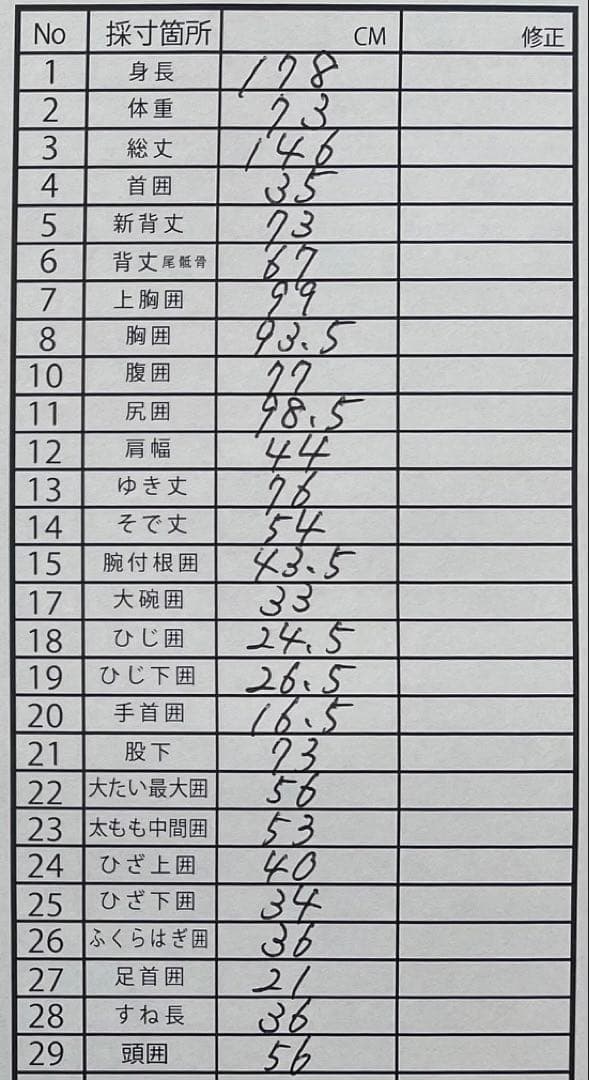 No 採寸箇所 CM 修正
1 身長 178
2 体重 73
3 総丈 146
4 首囲 35
5 新背丈 73
6 背丈尾骶骨 67
7 上胸囲 99
8 胸囲 93.5
10 腹囲 77
11 尻囲 98.5
12 肩幅 44
13 ゆき丈 76
14 そで丈 54
15 腕付根囲 43.5
17 大碗囲 33
18 ひじ囲 24.5
19 ひじ下囲 26.5
20 手首囲 16.5
21 股下 73
22 大たい最大囲 56
23 太もも中間囲 53
24 ひざ上囲 40
25 ひざ下囲 34
26 ふくらはぎ囲 36
27 足首囲 21
28 すね長 36
29 頭囲 56